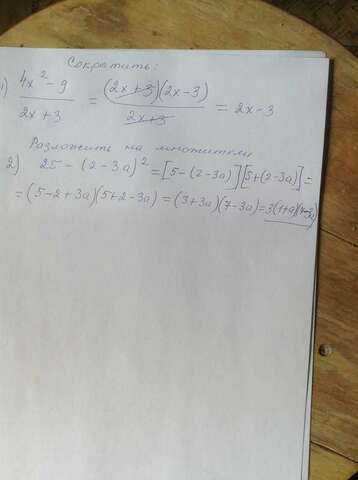 Сократить:
1) (4x² - 9)/(2x + 3) = ((2x + 3)(2x - 3))/(2x + 3) = 2x - 3
Разложить на множители
2) 25 - (2 - 3a)² = [5 - (2 - 3a)][5 + (2 - 3a)] =
= (5 - 2 + 3a)(5 + 2 - 3a) = (3 + 3a)(7 - 3a) = 3(1 + a)(7 - 3a)